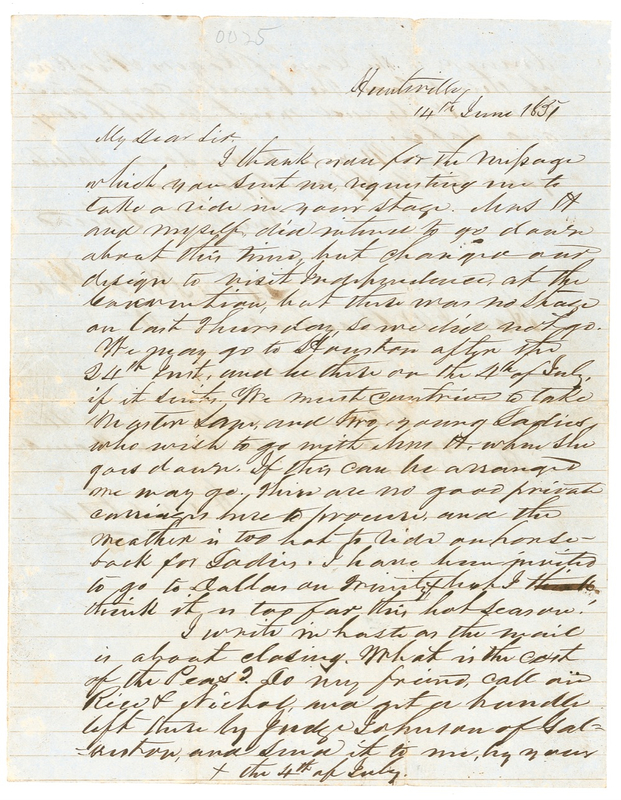 0025
Huntsville,
14th June 1851
My Dear Sir.
I thank you for the message
which you sent me, requesting me to
take a ride in your stage. Mrs H
and myself, did intend to go down
about this time, but changed our
design to visit Independence, at the
Convention, but there was no Stage
on last Thursday, so we did not go.
We may go to Houston after the
24th Inst, and be there on the 4th of July,
if it suits. We must contrive to take
Master Sam, and two, young Ladies,
who wish to go with Mrs H, when she
goes down. If this can be arranged
we may go, there are no good private
carriages here to procure, and the
weather is too hot to ride on horse-
back for Ladies. I have been invited
to go to Dallas on Trinity x but I think
think it, is too far this hot season!
I write in haste as the mail
is about closing. What is the cost
of the Peas? Do my friend, call on
Rice & Nichols, and get a bundle
left there by Judge Johnson of Gal-
-veston, and send it to me, by your
x the 4th of July.